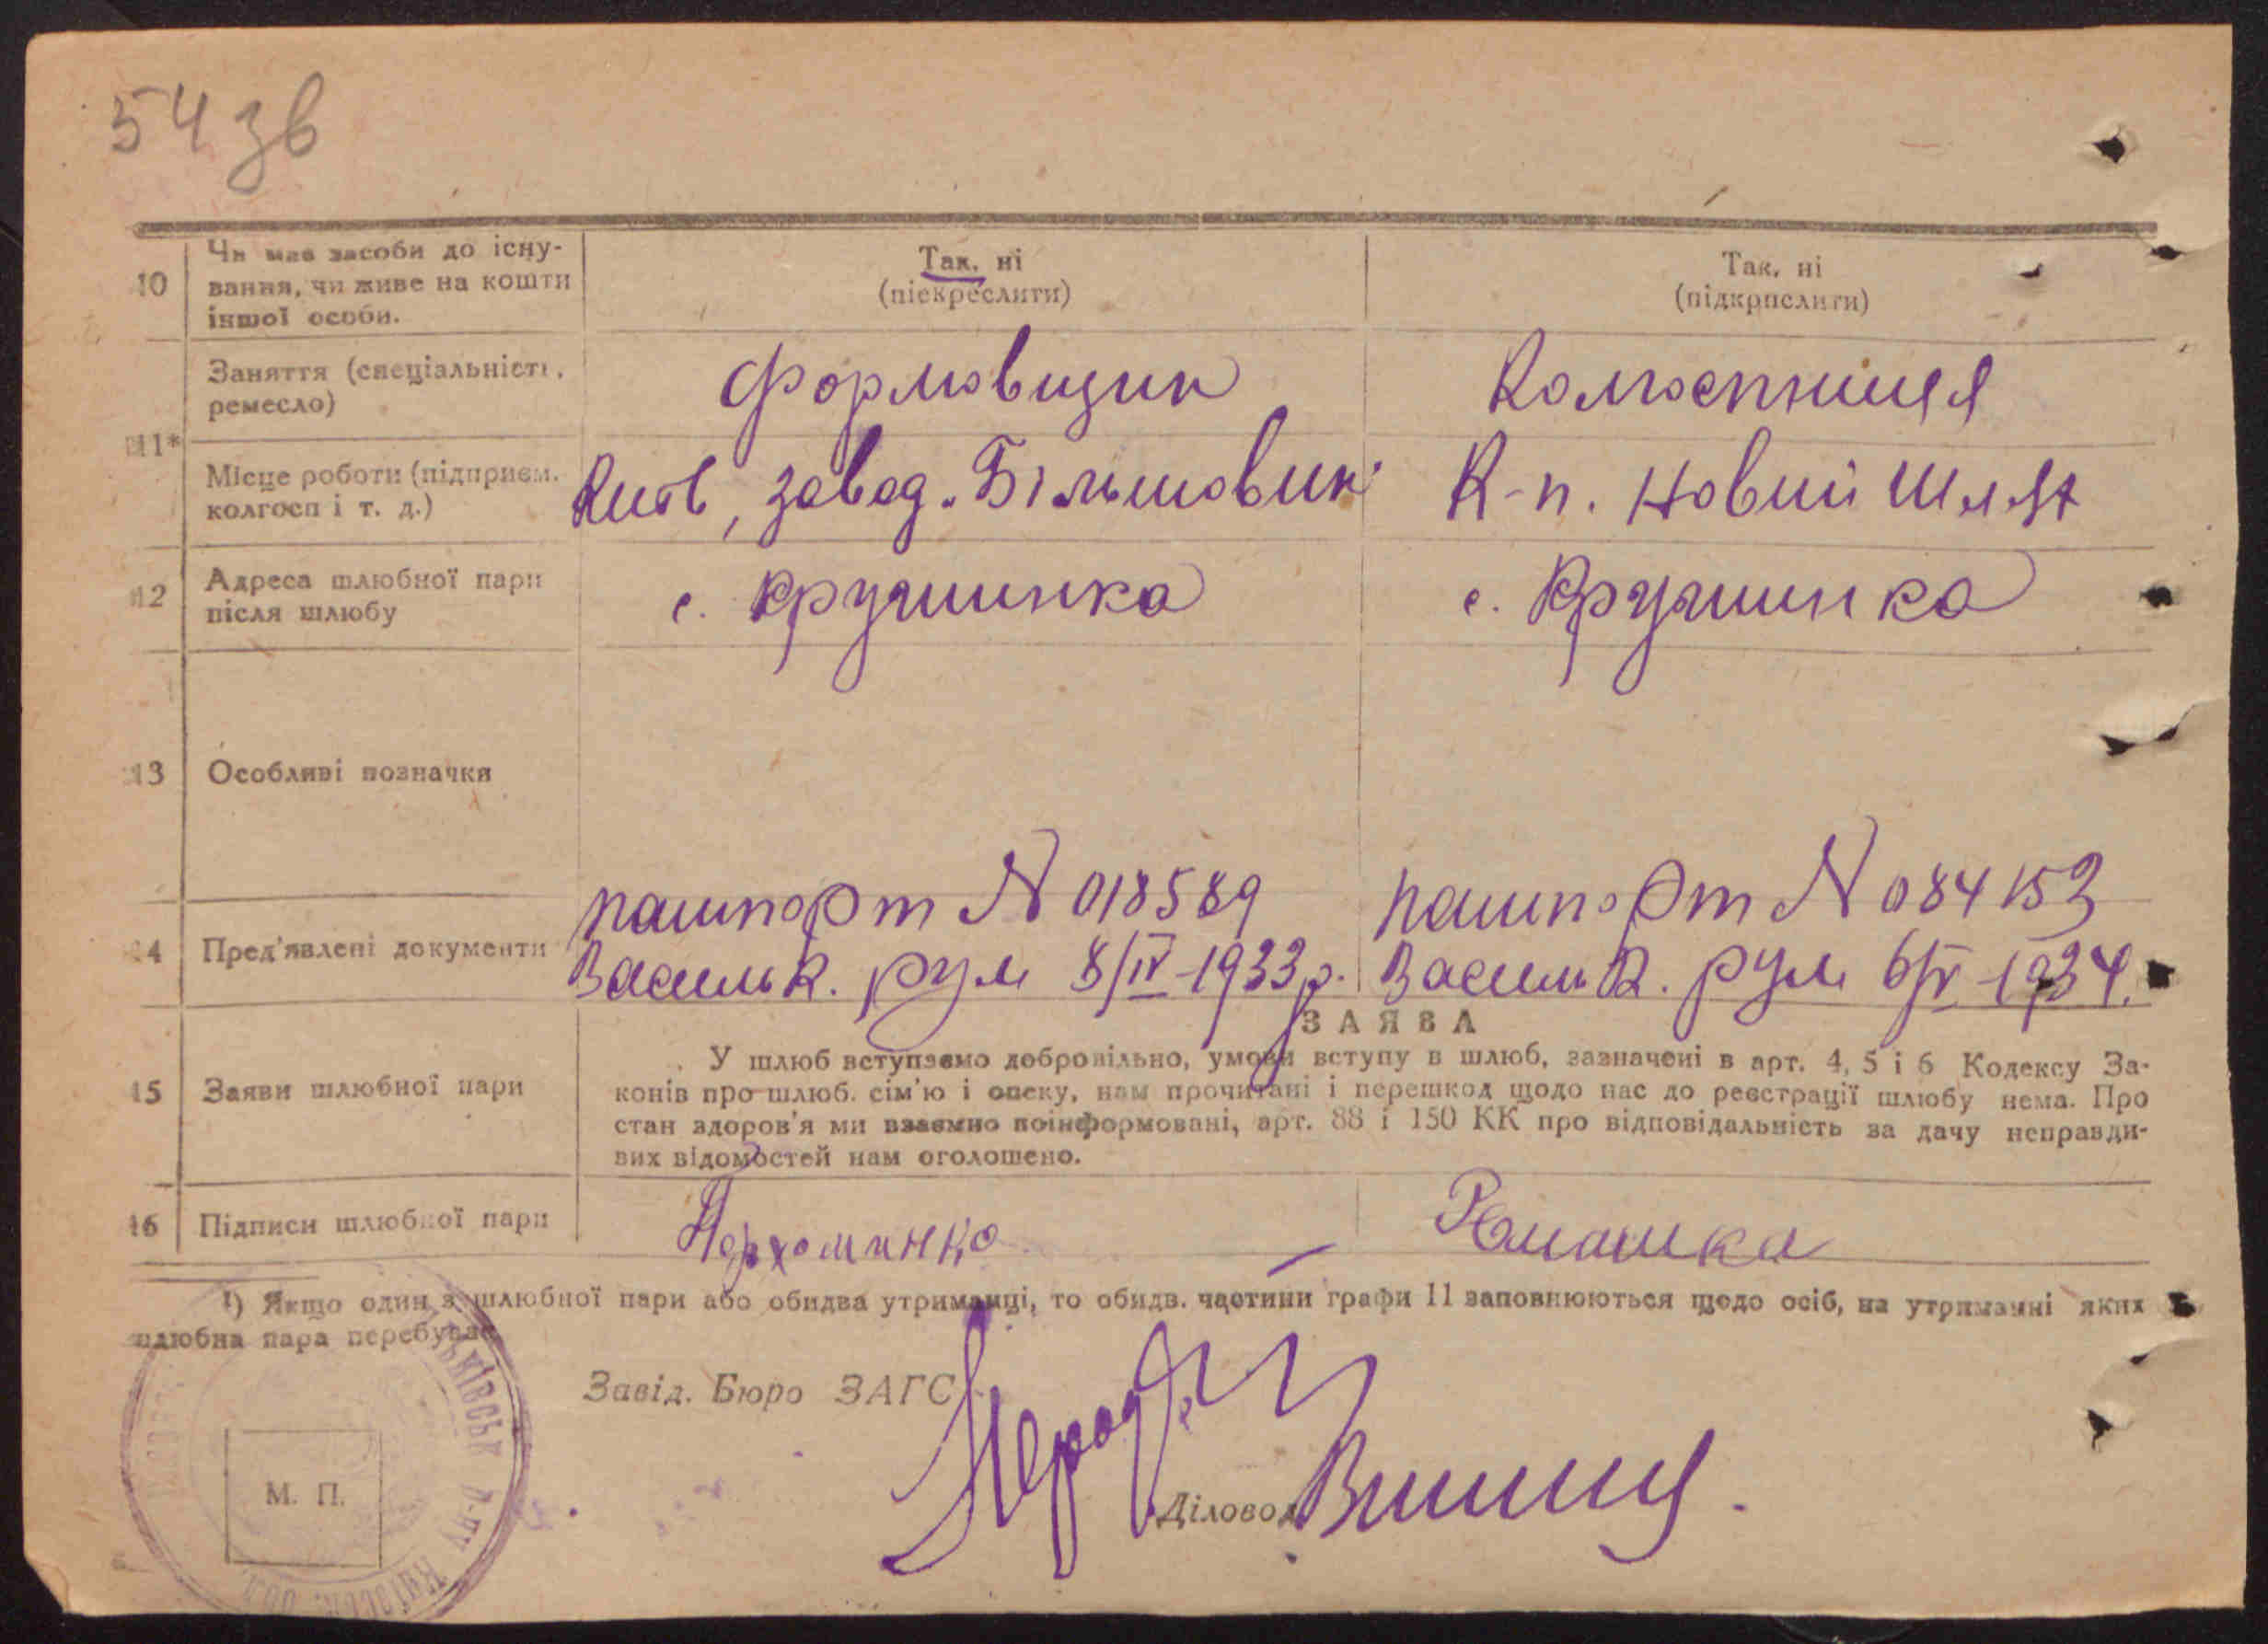 54 зв
10
Чи має засоби до існу-
вання, чи живе на кошти
іншої особи.
Так, ні
(піекреслити)
Так, ні
(підкрпслити)
11*
Заняття (спеціальність,
ремесло)
Формовщик
Колгоспниця
Місце роботи (підприєм.
колгосп і т. д.)
Київ, завод. Більшовик
К-п. Новий Шлях
12
Адреса шлюбної пари
після шлюбу
с. Кручинка
с. Кручинка
13
Особливі позначки
14
Пред'явлені документи
пашпорт N 018589
Васильк. рум 8/IV-1933 р.
пашпорт N 084153
Васильк. рум 6/V-1934.
15
Заяви шлюбної пари
ЗАЯВА
У шлюб вступаємо добровільно, умови вступу в шлюб, зазначені в арт. 4, 5 і 6 Кодексу За-
конів про шлюб. сім'ю і опеку, нам прочитані і перешкод щодо нас до реєстрації шлюбу нема. Про
стан здоров'я ми взаємно поінформовані, арт. 88 і 150 КК про відповідальність за дачу неправди-
вих відомостей нам оголошено.
16
Підписи шлюбної пари
Пархоминко
Ромашка
1) Якщо один з шлюбної пари або обидва утриманці, то обидв. частини графи 11 заповнюються щодо осіб, на утриманні яких
шлюбна пара перебуває.
Завід. Бюро ЗАГС
М. П.
Діловод